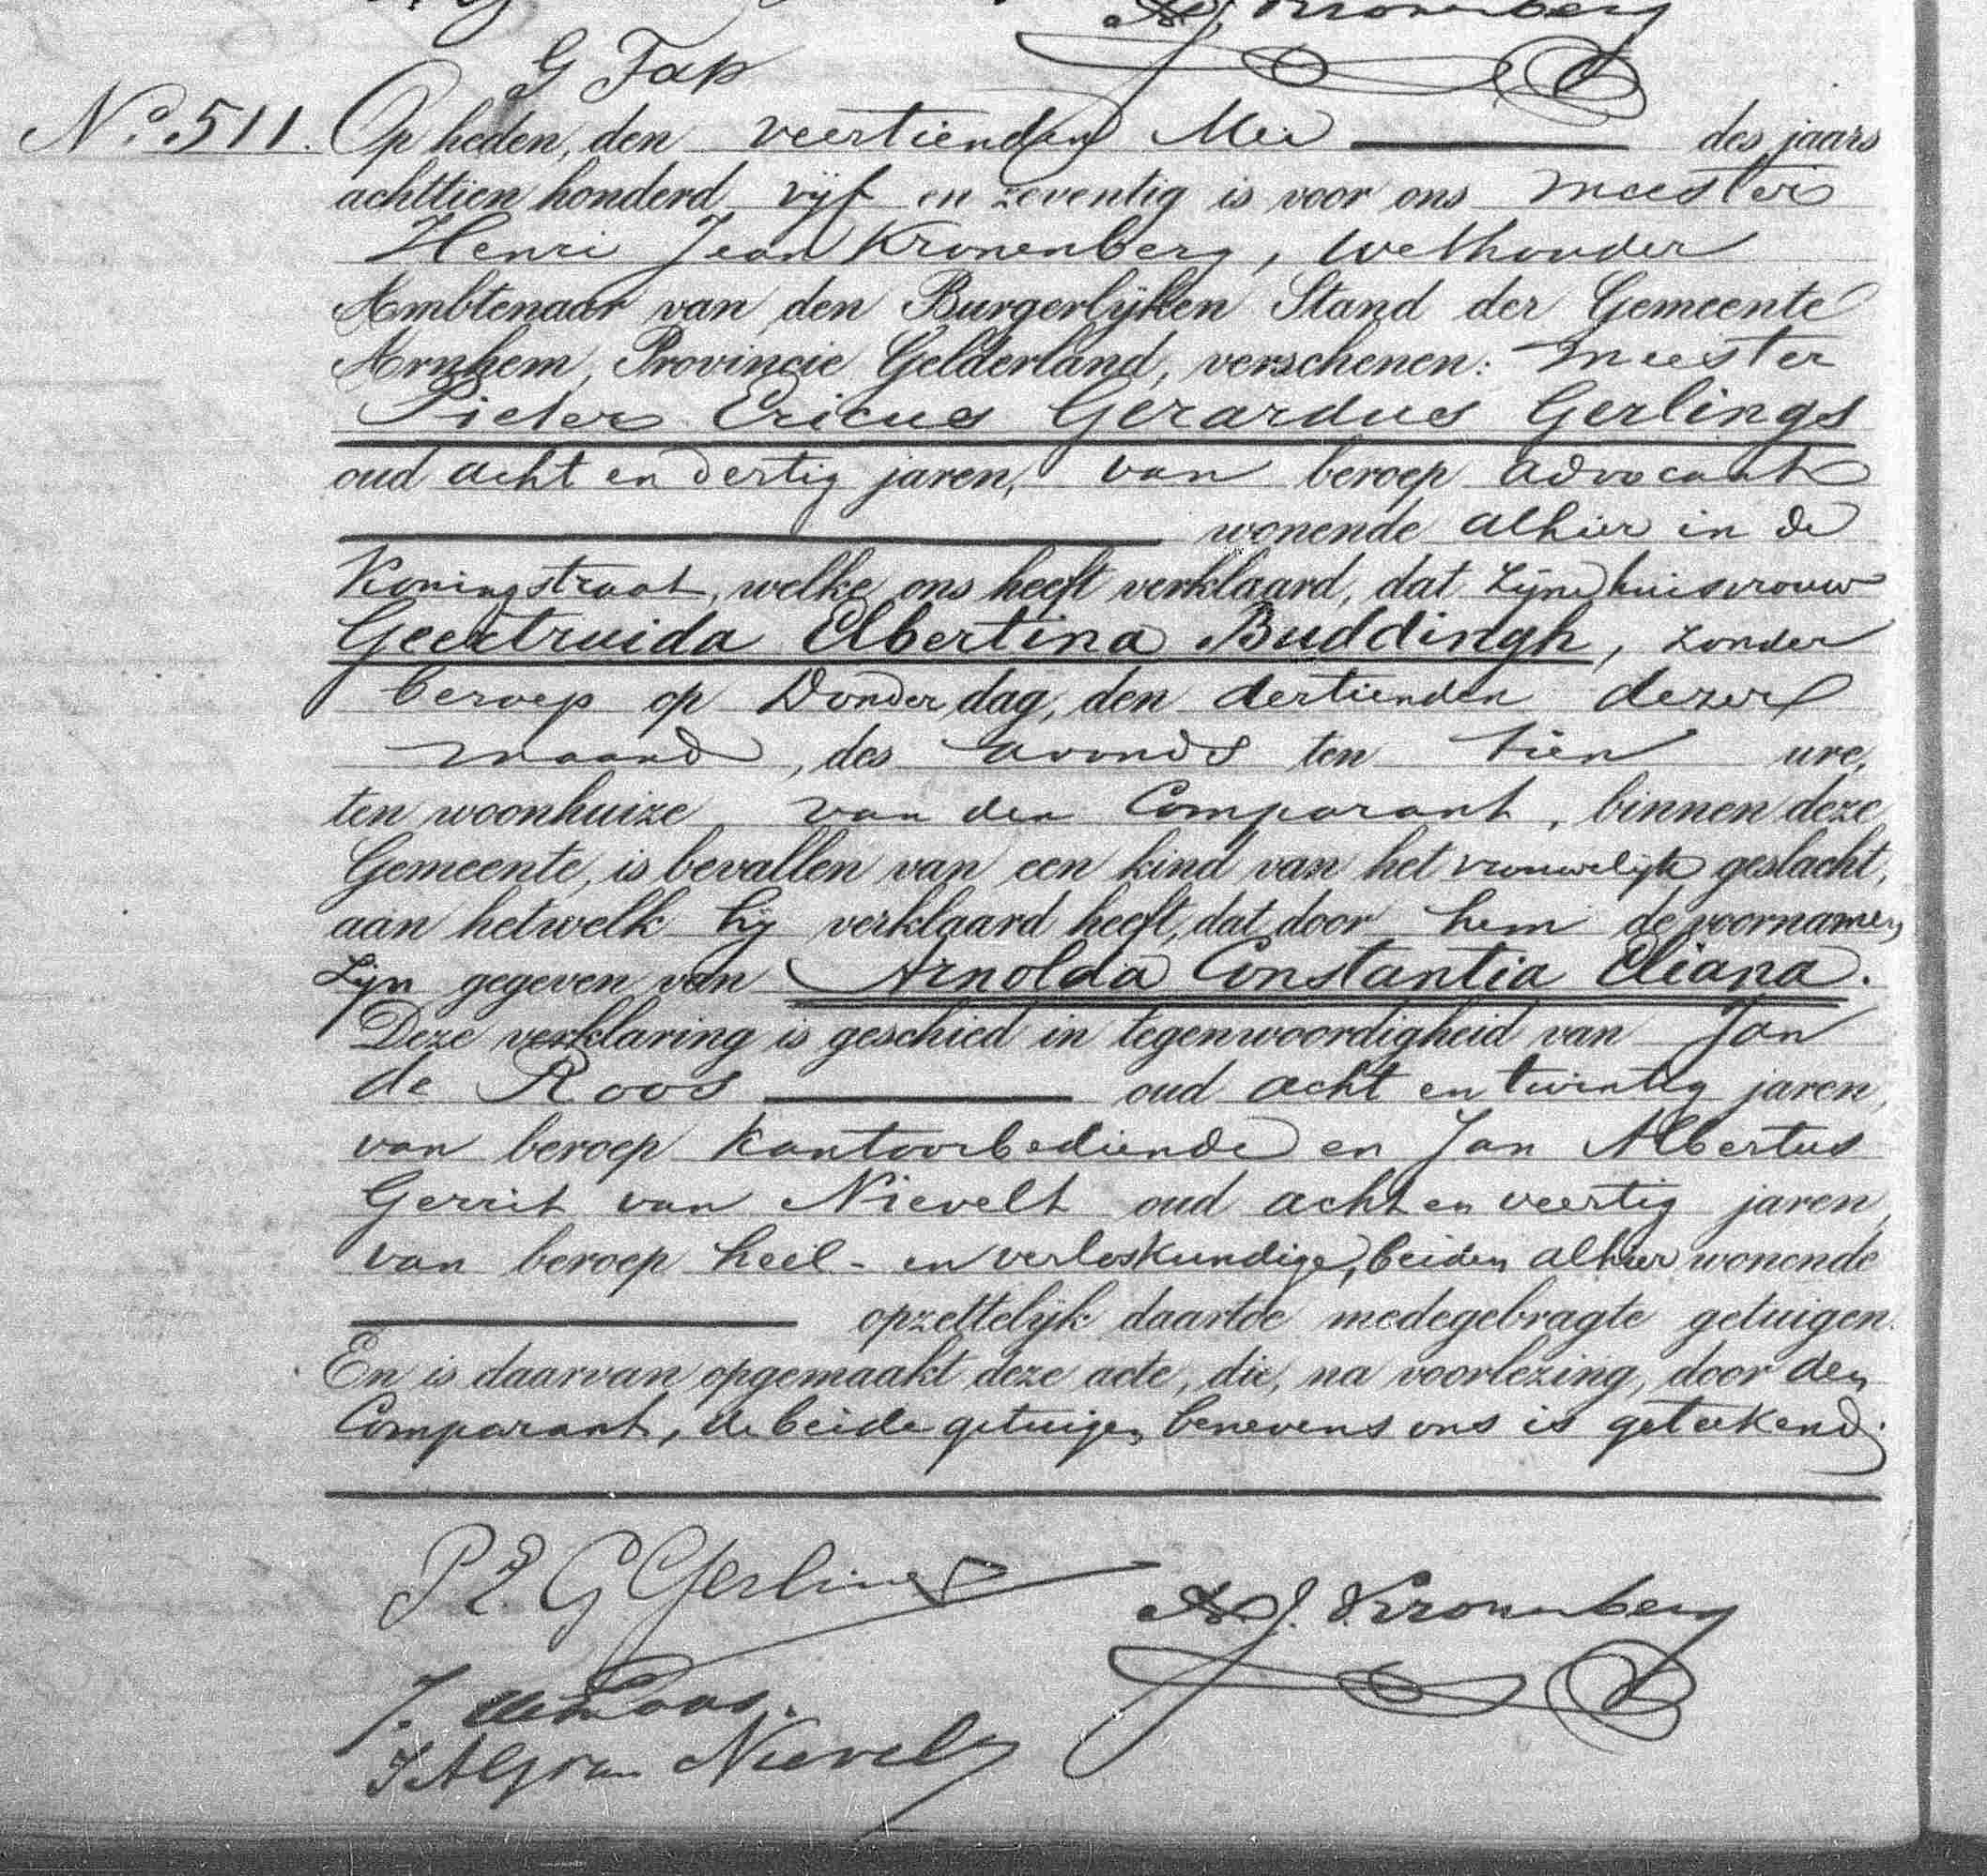 Kronenberg
G Tap
No. 511. Op heden, den veertienden Mei des jaars
achttien honderd vijf en zeventig is voor ons meester
Henri Jean Kronenberg, Wethouder
Ambtenaar van den Burgerlijken Stand der Gemeente
Arnhem, Provincie Gelderland, verschenen: meester
Pieter Ericus Gerardus Gerlings
oud acht en dertig jaren, van beroep advocaat
wonende alhier in de
Koningstraat, welke ons heeft verklaard, dat zijne huisvrouw
Geertruida Elbertina Buddingh, zonder
beroep op Donderdag, den dertienden dezer
maand, des avonds ten tien ure,
ten woonhuize van den Comparant, binnen deze
Gemeente, is bevallen van een kind van het vrouwelijk geslacht,
aan hetwelk hij verklaard heeft, dat door hem de voornamen
zijn gegeven van Arnolda Constantia Eliana.
Deze verklaring is geschied in tegenwoordigheid van Jan
de Roos oud acht en twintig jaren,
van beroep kantoorbediende en Jan Albertus
Gerrit van Nievelt oud acht en veertig jaren,
van beroep heel- en verloskundige, beiden alhier wonende
opzettelijk daartoe medegebragte getuigen.
En is daarvan opgemaakt deze acte, die, na voorlezing, door den
Comparant, de beide getuigen benevens ons is geteekend.
P E G Gerlings
H. J. Kronenberg
J. de Roos.
J A G van Nievelt